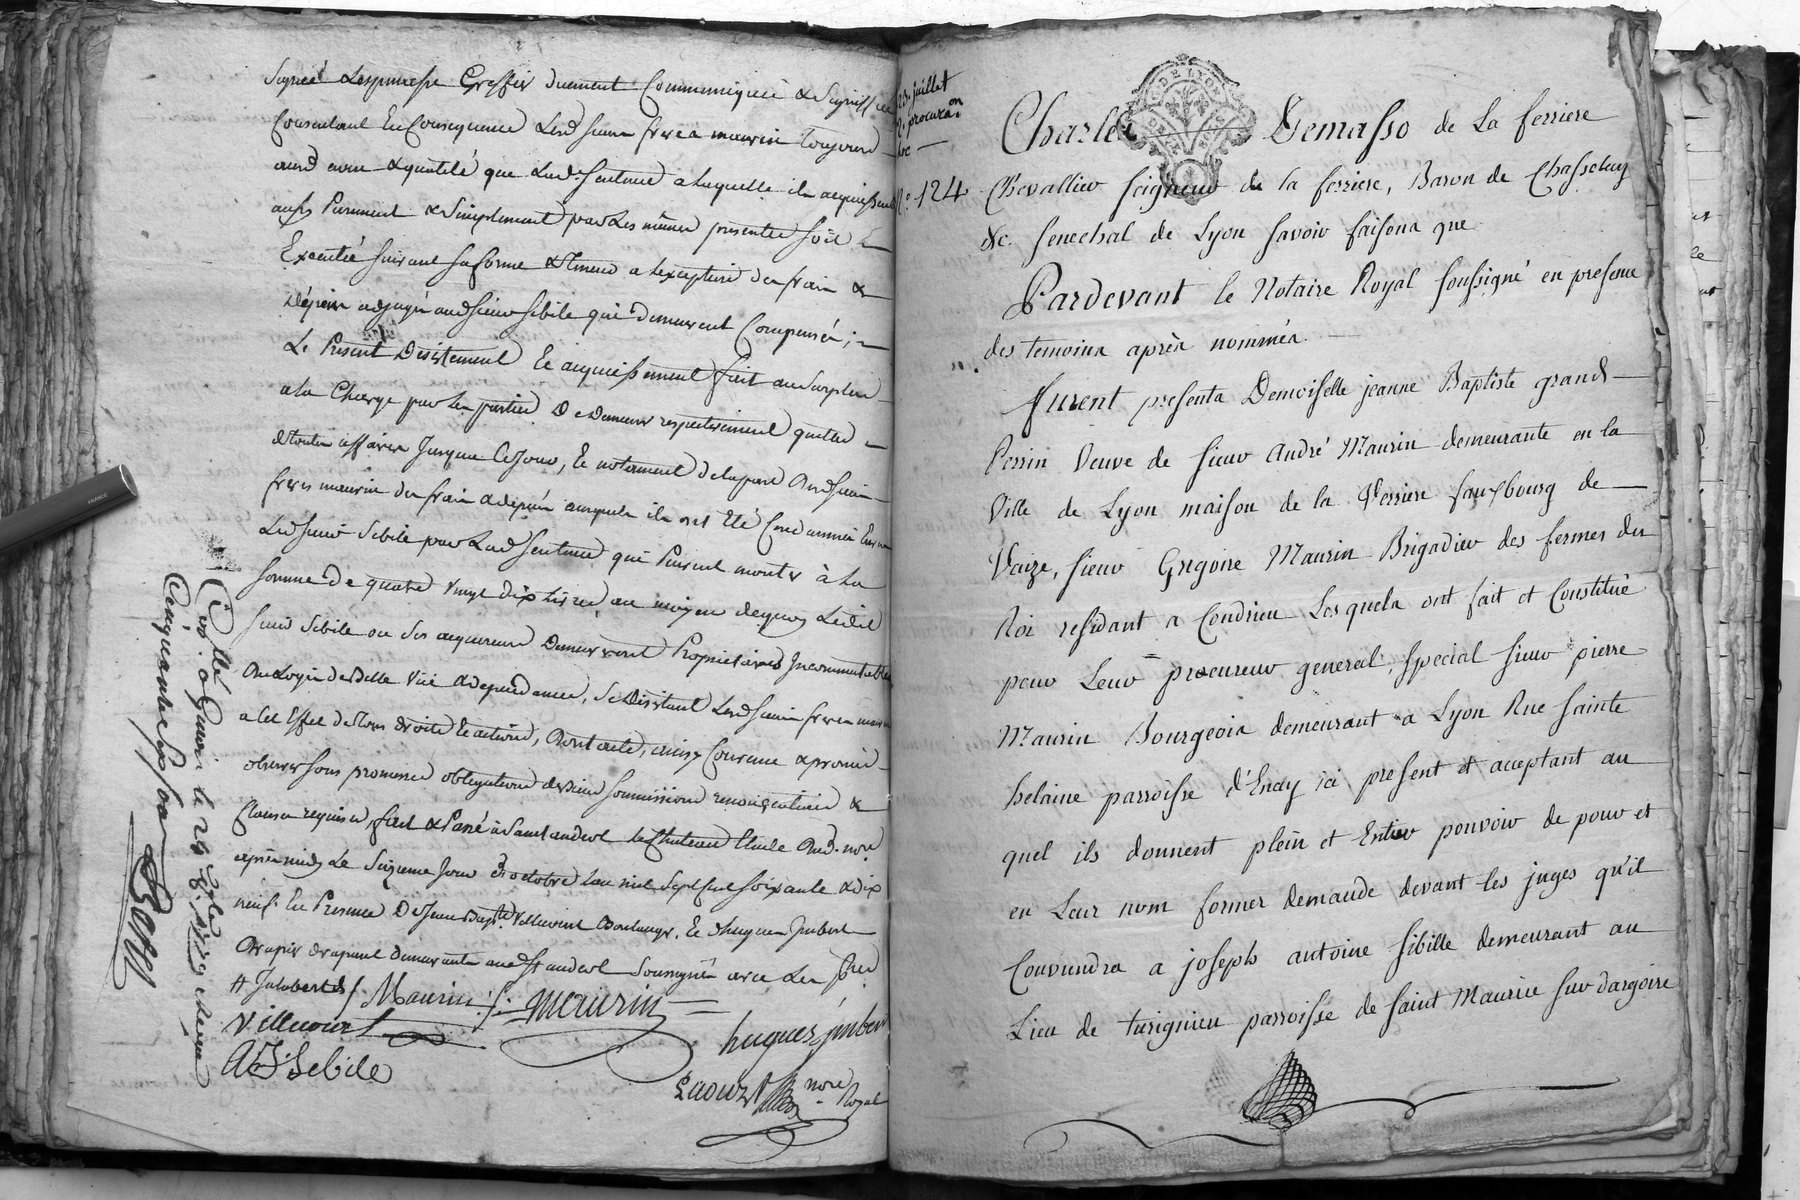 signée Lespinasse Greffier duement Communiquée & Signiffiée
Consentant En Consequence Lesd sieurs freres maurin toujours
aud nom & qualité que Lad. Sentence a laquelle ils acquiessent
aussy Purement & Simplement par Les mêmes presentes soit
Executée suivant sa forme & teneur a lexception des frais &
Dépens adjugés aud sieur sibile qui demeurent Compensés ;
Le Present Desistement Et acquiessement fait au Surplus
a la Charge par les parties De Demeurer respectivement quittes
de toutes affaires Jusques Cejour, Et notament de la part desd sieurs
freres maurin des frais & depens auxquels ils ont Eté Condamnés Envers
Led sieur Sibile par Lad Sentence qui Peuvent monter à La
somme De quatre vingt dix Livres au moyen dequoy Ledit
sieur Sibile ou Ses acquereurs Demeureront Proprietaires Incommutables
& dependances, Se Desistant Lesd sieurs freres maurin
a Cet Effet de tous droits Et actions, Dont acte, ainsy Convenu & promis
observer sous promesses obligations de biens soumissions renonciations &
Clauses requises, fait & Passé à Saint andeol Le Chateau Etude Dud. nore
après midy Le Seizieme Jour d'octobre l'an mil Sept Cent soixante & dix
neuf En Presence De Jean Bapte. Villecourt Boulanger, Et d'hugues Jmbert
demeurants aud St andeol Soussignés avec Les Parties
Maurin
f. maurin
Villecourt
hugues jmbert
A J. Sebile
nore Royal
Collé à Givors le 24
Cinquante Six sou
23. juillet
procuraon
N.o 124
Charles Demasso de La ferriere
Chevallier seigneur de la ferriere, Baron de Chasselay
&c. senechal de Lyon savoir faisons que
Pardevant le Notaire Royal soussigné en presence
des temoins après nommés
furent presents Demoiselle jeanne Baptiste grand
Perrin Veuve de sieur André Maurin demeurante en la
Ville de Lyon maison de la Verriere fauxbourg de
Vaize, sieur Grigoire Maurin Brigadier des fermes du
Roi residant a Condrieu Lesquels ont fait et Constitué
pour Leur procureur general, special sieur pierre
Maurin Bourgeois demeurant a Lyon Rue sainte
helaine parroisse d'Enay ici present et acceptant au
quel ils donnent plein et Entier pouvoir de pour et
en Leur nom former demande devant les juges qu'il
Conviendra a joseph antoine sibille demeurant au
Lieu de turignieu parroisse de saint Maurice sur dargoire